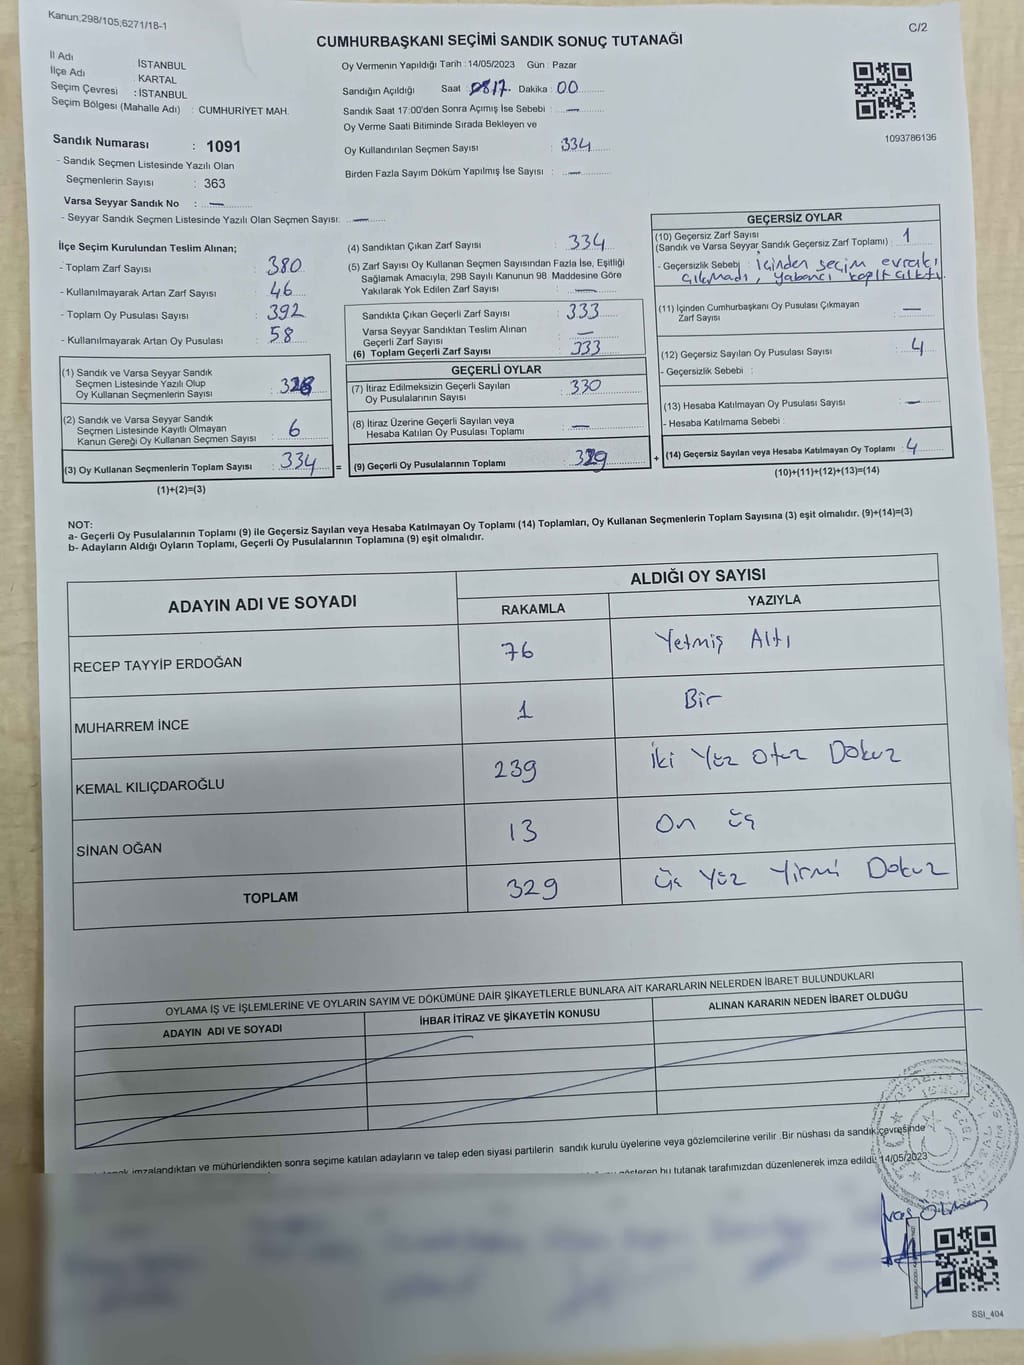 Kanun;298/105;6271/18-1
C/2
CUMHURBAŞKANI SEÇİMİ SANDIK SONUÇ TUTANAĞI
İl Adı İSTANBUL
İlçe Adı : KARTAL
Seçim Çevresi : İSTANBUL
Seçim Bölgesi (Mahalle Adı) : CUMHURİYET MAH.
Oy Vermenin Yapıldığı Tarih : 14/05/2023 Gün : Pazar
Sandığın Açıldığı Saat : 17 Dakika : 00
Sandık Saat 17:00'den Sonra Açımış İse Sebebi : —
Oy Verme Saati Bitiminde Sırada Bekleyen ve
Oy Kullandırılan Seçmen Sayısı : 334
Birden Fazla Sayım Döküm Yapılmış İse Sayısı : —
1093786136
Sandık Numarası : 1091
- Sandık Seçmen Listesinde Yazılı Olan
Seçmenlerin Sayısı : 363
Varsa Seyyar Sandık No : —
- Seyyar Sandık Seçmen Listesinde Yazılı Olan Seçmen Sayısı: —
İlçe Seçim Kurulundan Teslim Alınan;
- Toplam Zarf Sayısı : 380
- Kullanılmayarak Artan Zarf Sayısı : 46
- Toplam Oy Pusulası Sayısı : 392
- Kullanılmayarak Artan Oy Pusulası : 58
(1) Sandık ve Varsa Seyyar Sandık
Seçmen Listesinde Yazılı Olup
Oy Kullanan Seçmenlerin Sayısı : 328
(2) Sandık ve Varsa Seyyar Sandık
Seçmen Listesinde Kayıtlı Olmayan
Kanun Gereği Oy Kullanan Seçmen Sayısı : 6
(3) Oy Kullanan Seçmenlerin Toplam Sayısı : 334 =
(1)+(2)=(3)
(4) Sandıktan Çıkan Zarf Sayısı : 334
(5) Zarf Sayısı Oy Kullanan Seçmen Sayısından Fazla İse, Eşitliği
Sağlamak Amacıyla, 298 Sayılı Kanunun 98 Maddesine Göre
Yakılarak Yok Edilen Zarf Sayısı : —
Sandıkta Çıkan Geçerli Zarf Sayısı : 333
Varsa Seyyar Sandıktan Teslim Alınan
Geçerli Zarf Sayısı : —
(6) Toplam Geçerli Zarf Sayısı : 333
GEÇERLİ OYLAR
(7) İtiraz Edilmeksizin Geçerli Sayılan
Oy Pusulalarının Sayısı : 330
(8) İtiraz Üzerine Geçerli Sayılan veya
Hesaba Katılan Oy Pusulası Toplamı : —
(9) Geçerli Oy Pusulalarının Toplamı : 329 +
GEÇERSİZ OYLAR
(10) Geçersiz Zarf Sayısı
(Sandık ve Varsa Seyyar Sandık Geçersiz Zarf Toplamı) : 1
- Geçersizlik Sebebi : İçinden seçim evrakı
çıkmadı, yabancı kağıt çıktı.
(11) İçinden Cumhurbaşkanı Oy Pusulası Çıkmayan
Zarf Sayısı : —
(12) Geçersiz Sayılan Oy Pusulası Sayısı : 4
- Geçersizlik Sebebi :
(13) Hesaba Katılmayan Oy Pusulası Sayısı : —
- Hesaba Katılmama Sebebi :
(14) Geçersiz Sayılan veya Hesaba Katılmayan Oy Toplamı : 4
(10)+(11)+(12)+(13)=(14)
NOT:
a- Geçerli Oy Pusulalarının Toplamı (9) ile Geçersiz Sayılan veya Hesaba Katılmayan Oy Toplamı (14) Toplamları, Oy Kullanan Seçmenlerin Toplam Sayısına (3) eşit olmalıdır. (9)+(14)=(3)
b- Adayların Aldığı Oyların Toplamı, Geçerli Oy Pusulalarının Toplamına (9) eşit olmalıdır.
ADAYIN ADI VE SOYADI
ALDIĞI OY SAYISI
RAKAMLA YAZIYLA
RECEP TAYYİP ERDOĞAN 76 Yetmiş Altı
MUHARREM İNCE 1 Bir
KEMAL KILIÇDAROĞLU 239 İki Yüz Otuz Dokuz
SİNAN OĞAN 13 On üç
TOPLAM 329 Üç Yüz Yirmi Dokuz
OYLAMA İŞ VE İŞLEMLERİNE VE OYLARIN SAYIM VE DÖKÜMÜNE DAİR ŞİKAYETLERLE BUNLARA AİT KARARLARIN NELERDEN İBARET BULUNDUKLARI
ADAYIN ADI VE SOYADI İHBAR İTİRAZ VE ŞİKAYETİN KONUSU ALINAN KARARIN NEDEN İBARET OLDUĞU
imzalandıktan ve mühürlendikten sonra seçime katılan adayların ve talep eden siyasi partilerin sandık kurulu üyelerine veya gözlemcilerine verilir .Bir nüshası da sandık çevresinde
gösteren bu tutanak tarafımızdan düzenlenerek imza edildi. 14/05/2023
SSI_404